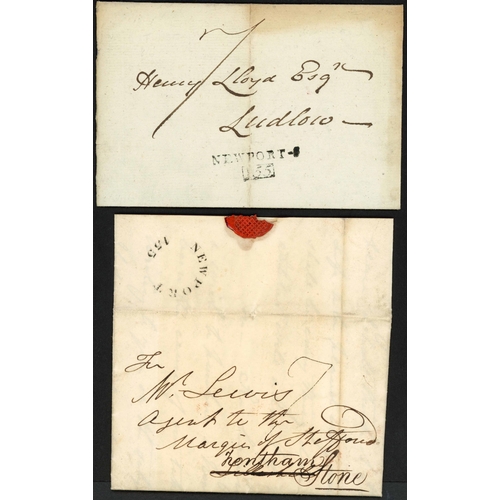 7
Henry Lloyd Esqr
Ludlow
NEWPORT-S
155
NEWPORT 155
For
Mr Lewis 7
Agent to the
Marquis of Stafford
Trentham
Stone